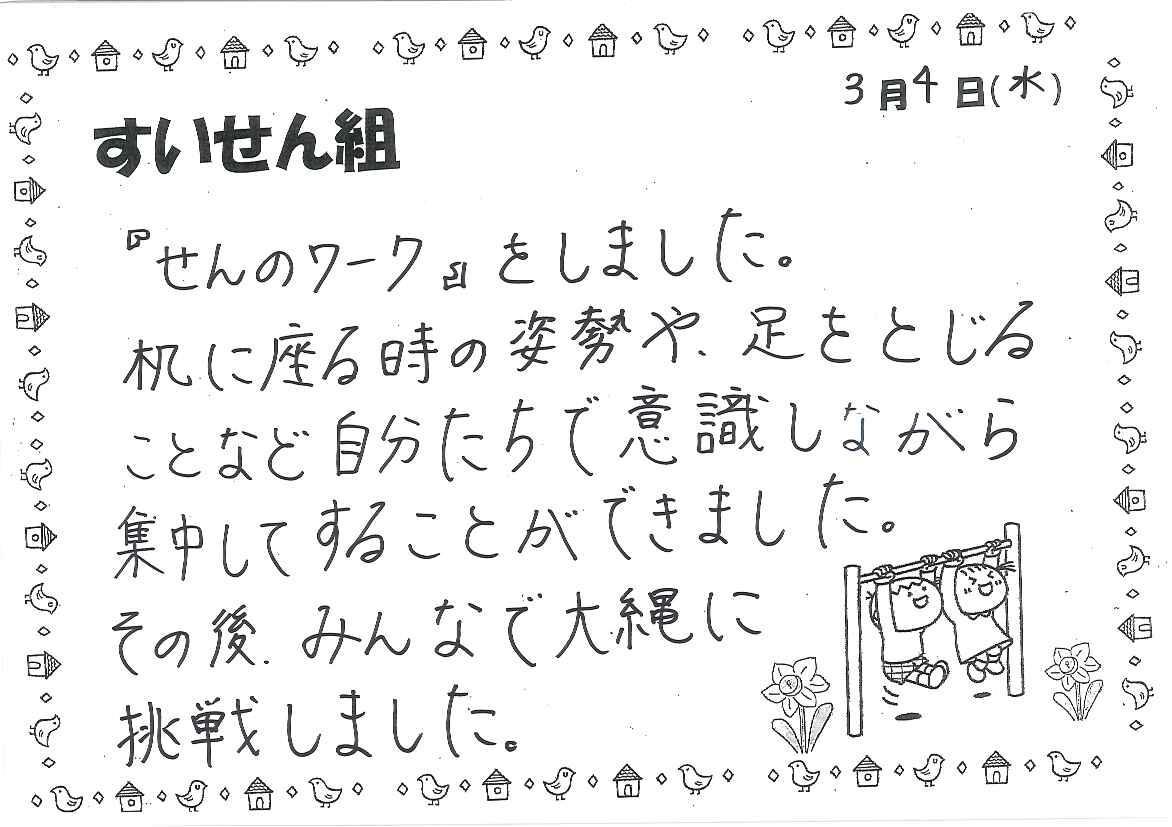 3月4日(水)
すいせん組
『せんのワーク』をしました。
机に座る時の姿勢や、足をとじる
ことなど自分たちで意識しながら
集中してすることができました。
その後、みんなで大縄に
挑戦しました。